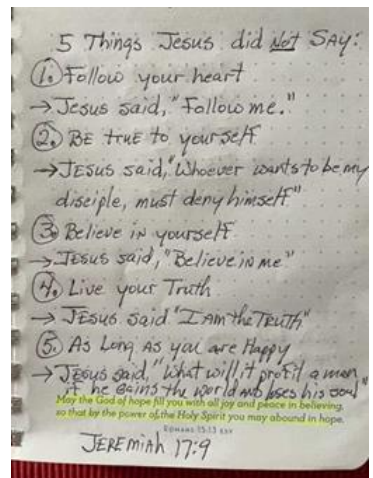 5 Things Jesus did Not SAY:
1. Follow your heart
→ Jesus said, "Follow me."
2. BE TRUE to yourself
→ JESUS said, "Whoever wants to be my
disciple, must deny himself."
3. Believe in yourself
→ JESUS said, "Believe in me"
4. Live your Truth
→ JESUS said "I AM the TRUTH"
5. As Long As you are Happy
→ Jesus said, "What will it profit a man
if he GAINS the world and loses his soul"
May the God of hope fill you with all joy and peace in believing,
so that by the power of the Holy Spirit you may abound in hope.
ROMANS 15:13 ESV
JEREMIAH 17:9